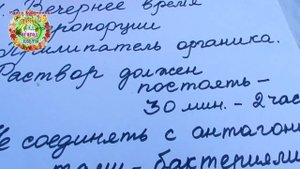 . Вечернее время
ропорции
Прилипатель органика.
Раствор должен
постоять –
30 мин. – 2 час
Не соединять с антагони
– бактериями